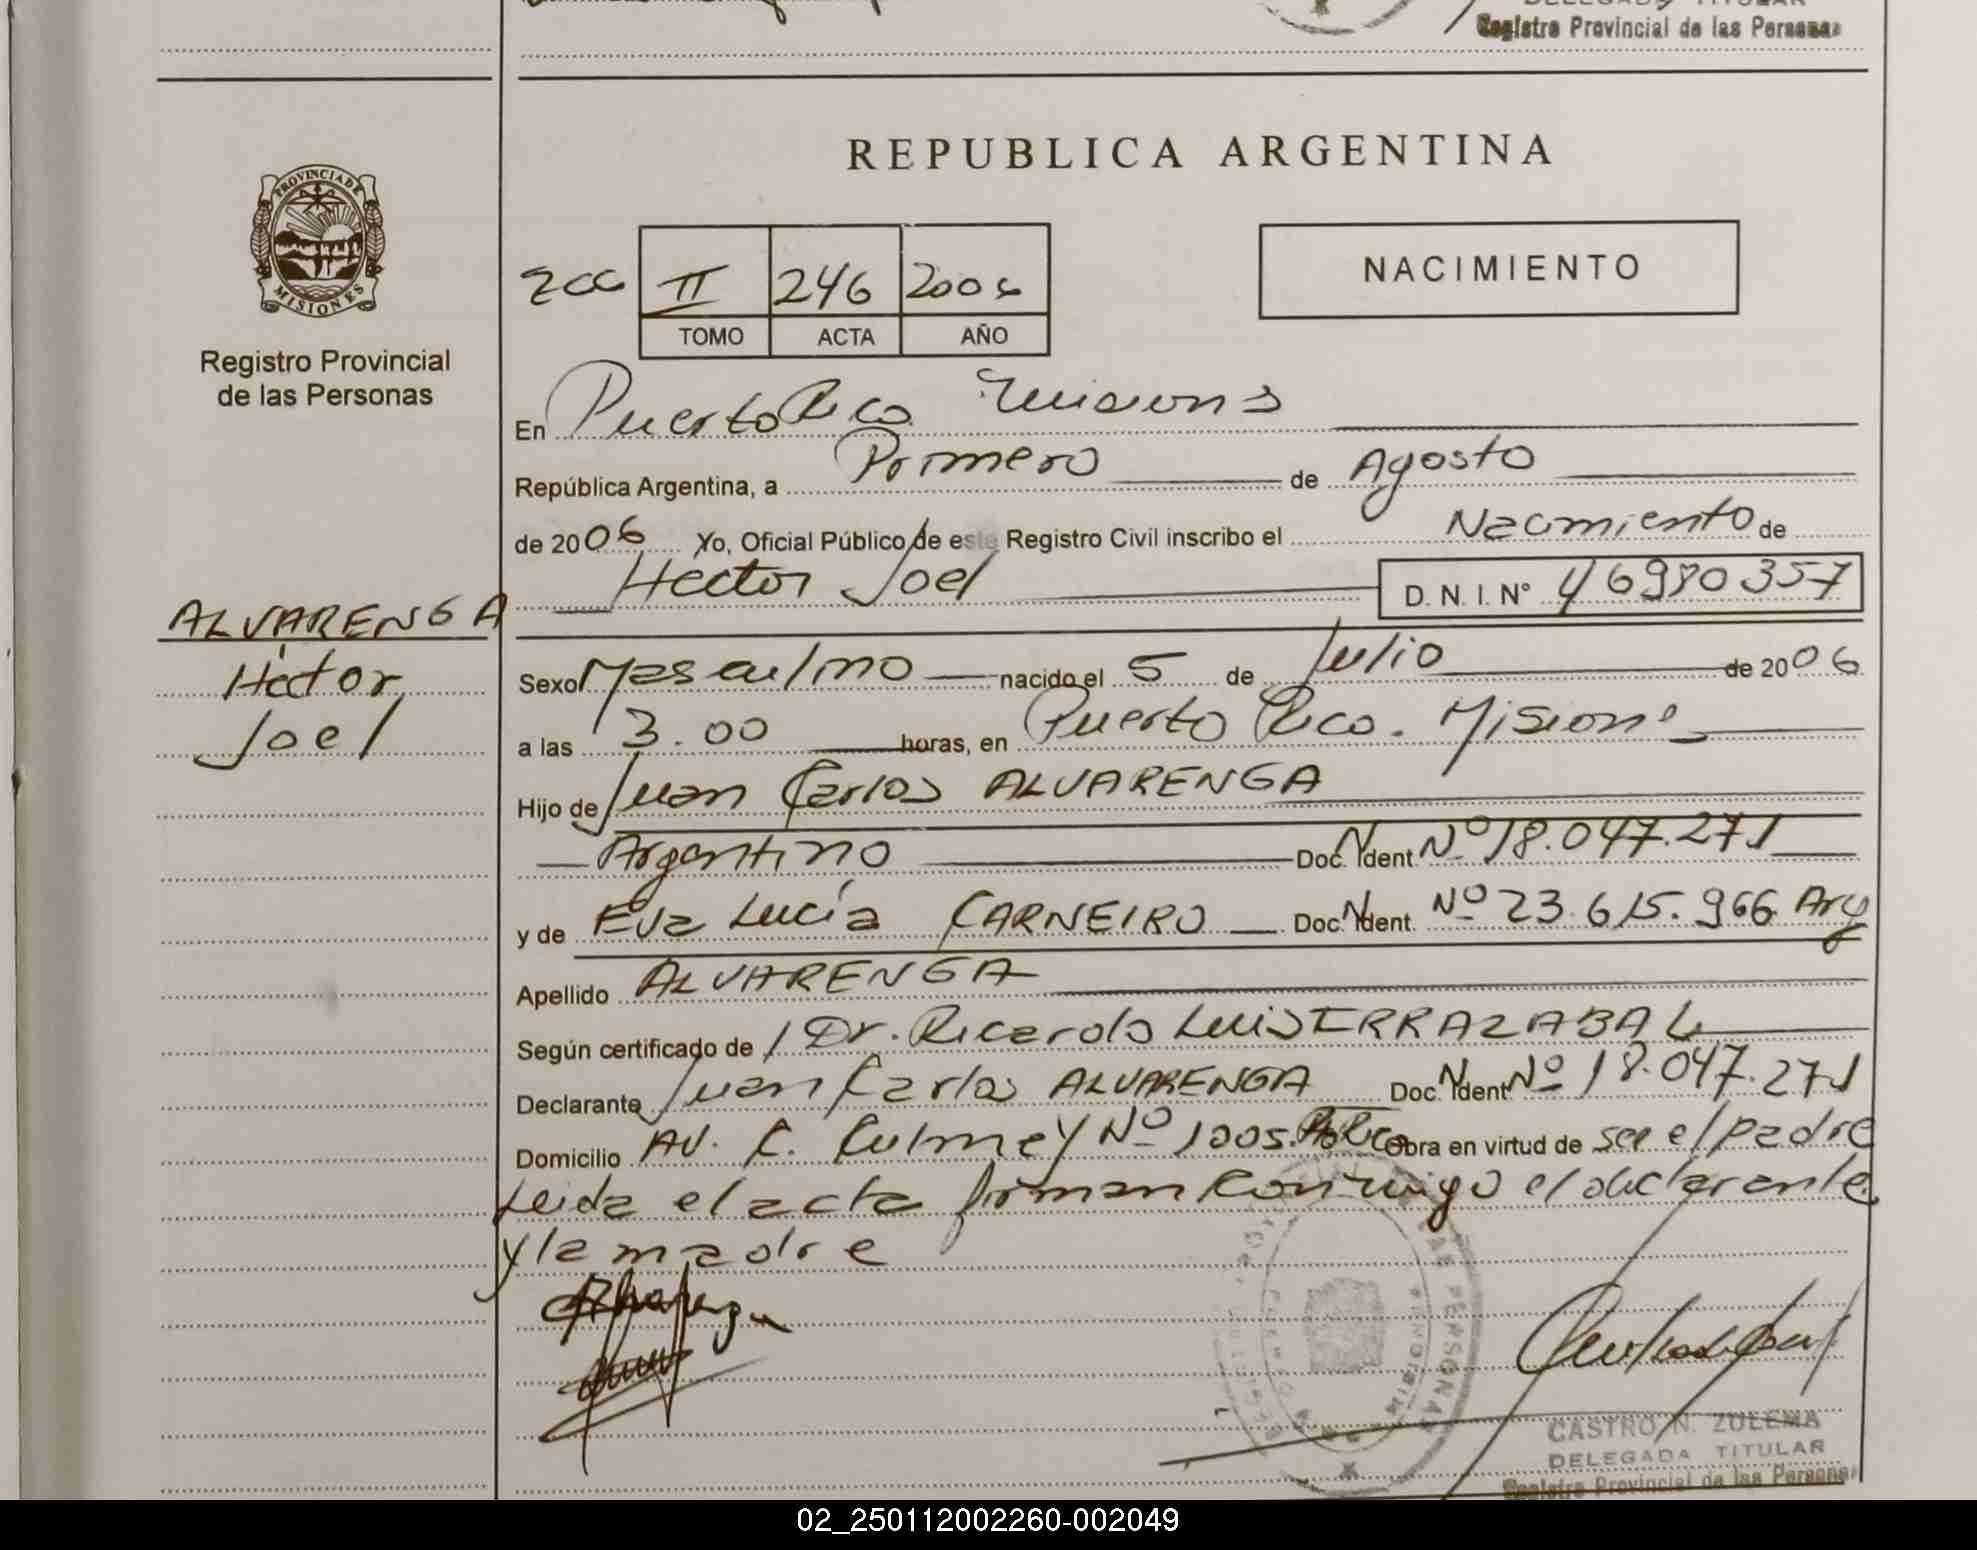 DELEGADA TITULAR
Registro Provincial de las Personas
PROVINCIA DE
MISIONES
Registro Provincial
de las Personas
REPUBLICA ARGENTINA
NACIMIENTO
II 246 2006
TOMO ACTA AÑO
En Puerto Rico Misiones
República Argentina, a Primero de Agosto
de 2006 Yo, Oficial Público de este Registro Civil inscribo el Nacimiento de
Hector Joel D. N. I. N° 46980357
ALVARENGA
Héctor
Joel
Sexo Masculino nacido el 5 de Julio de 2006
a las 3.00 horas, en Puerto Rico. Misiones
Hijo de Juan Carlos ALVARENGA
Argentino Doc. Ident. Nº 18.047.271
y de Eva Lucía CARNEIRO Doc. Ident. Nº 23.615.966 Arg
Apellido ALVARENGA
Según certificado de Dr. Ricardo Luis IRRAZABAL
Declarante Juan Carlos ALVARENGA Doc. Ident Nº 18.047.271
Domicilio AV. C. Culmey Nº 1005. Pto Rico Obra en virtud de ser el padre
Leida el acta firman conmigo el declarante
y la madre
CASTRO N. ZULEMA
DELEGADA TITULAR
Registro Provincial de las Personas
02_250112002260-002049